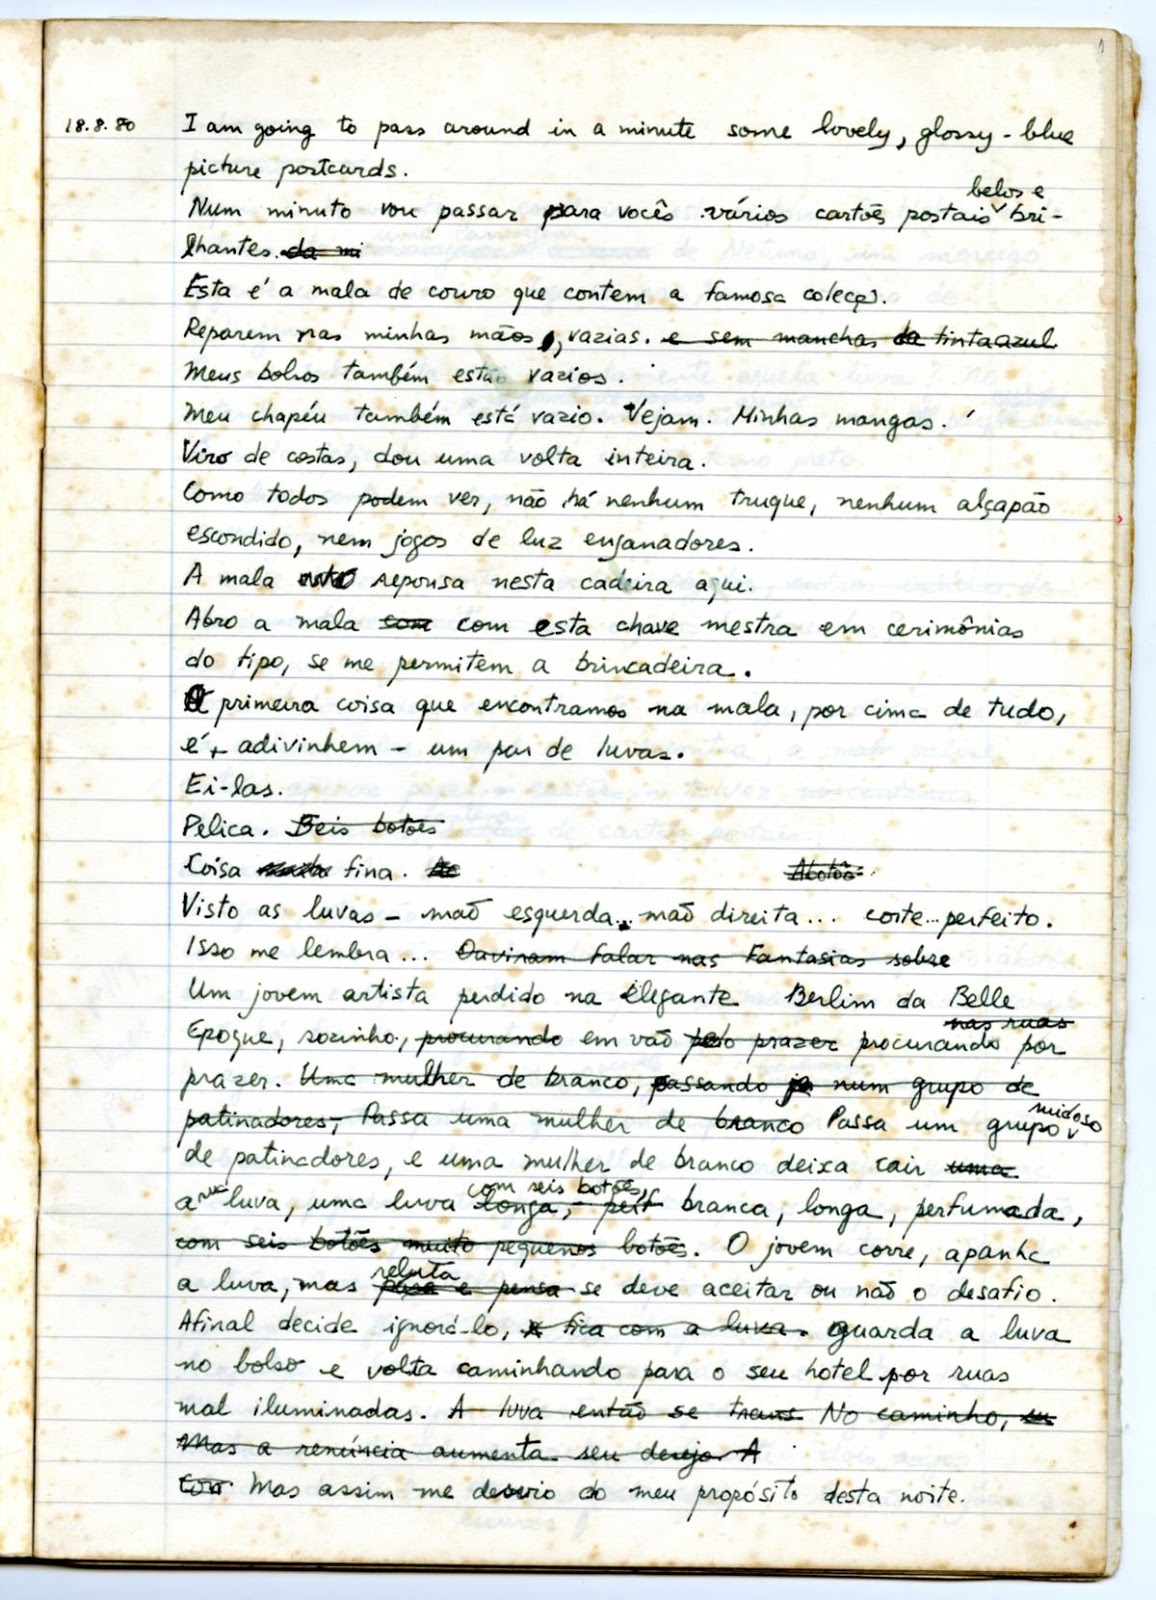 18.8.80 I am going to pass around in a minute some lovely, glossy-blue
picture postcards.
belos e
Num minuto vou passar para vocês vários cartões postais bri-
lhantes. da mi
Esta é a mala de couro que contem a famosa coleção.
Reparem nas minhas mãos, vazias. e sem manchas da tinta azul
Meus bolsos também estão vazios.
Meu chapéu também está vazio. Vejam. Minhas mangas.
Viro de costas, dou uma volta inteira.
Como todos podem ver, não há nenhum truque, nenhum alçapão
escondido, nem jogos de luz enganadores.
A mala está repousa nesta cadeira aqui.
Abro a mala com com esta chave mestra em cerimônias
do tipo, se me permitem a brincadeira.
A primeira coisa que encontramos na mala, por cima de tudo,
é, adivinhem - um par de luvas.
Ei-las.
Pelica. Seis botões
Coisa muito fina. Ab Abotôo
Visto as luvas - mão esquerda... mão direita... corte... perfeito.
Isso me lembra... Ouviram falar nas Fantasias sobre
Um jovem artista perdido na elegante Berlim da Belle
nas ruas
Epoque, sozinho, procurando em vão pelo prazer procurando por
prazer. Uma mulher de branco, passando num grupo de
patinadores, Passa uma mulher de branco Passa um grupo
ruidoso
de patinadores, e uma mulher de branco deixa cair uma
com seis botões,
a luva, uma luva longa, perf branca, longa, perfumada,
com seis botões muito pequenos botões. O jovem corre, apanha
reluta
a luva, mas para e pensa se deve aceitar ou não o desafio.
Afinal decide ignorá-lo, fica com a luva. guarda a luva
no bolso e volta caminhando para o seu hotel por ruas
mal iluminadas. A luva então se trans No caminho,
Mas a renúncia aumenta seu desejo. A
Con Mas assim me desvio do meu propósito desta noite.